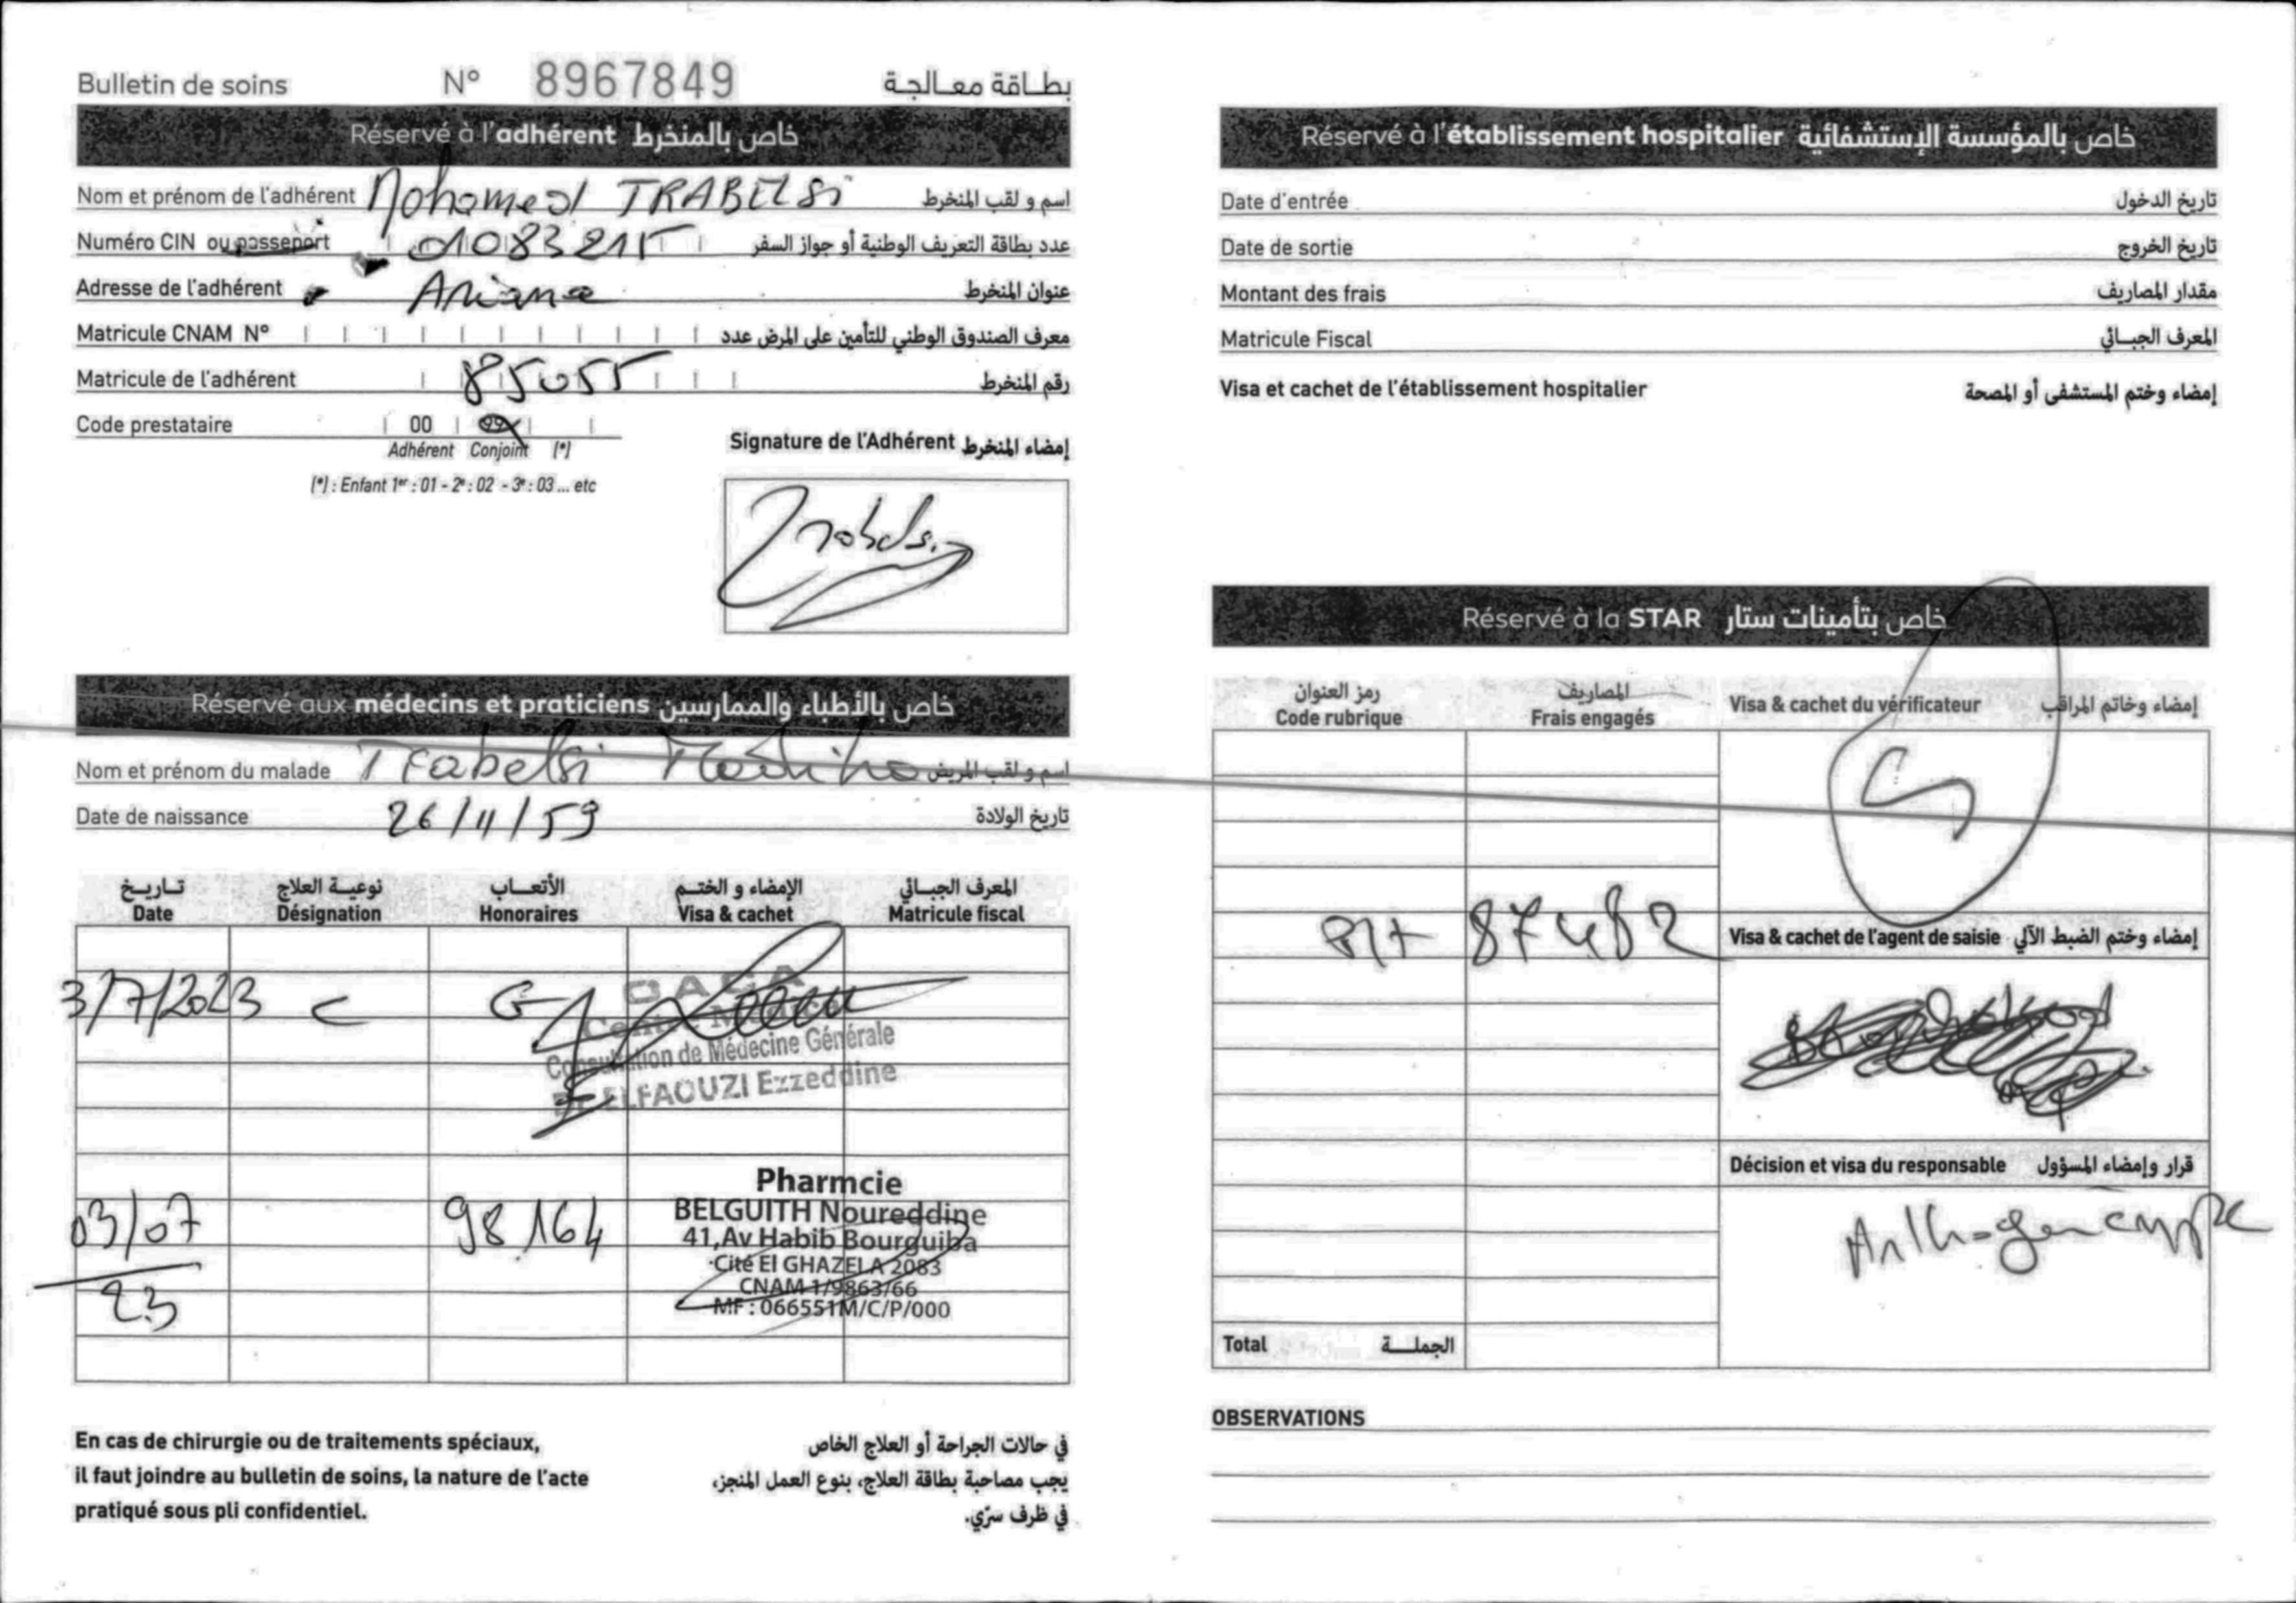 Bulletin de soins N° 8967849 بطاقة معالجة
Réservé à l'adhérent خاص بالمنخرط
Nom et prénom de l'adhérent Mohamed TRABELSI اسم و لقب المنخرط
Numéro CIN ou passeport 01083215 عدد بطاقة التعريف الوطنية أو جواز السفر
Adresse de l'adhérent Ariana عنوان المنخرط
Matricule CNAM N° معرف الصندوق الوطني للتأمين على المرض عدد
Matricule de l'adhérent 85055 رقم المنخرط
Code prestataire 00 99
Adhérent Conjoint (*)
(*) : Enfant 1er : 01 - 2e : 02 - 3e : 03 ... etc
Signature de l'Adhérent إمضاء المنخرط
Trabelsi
Réservé aux médecins et praticiens خاص بالأطباء والممارسين
Nom et prénom du malade Trabelsi اسم و لقب المريض
Date de naissance 26/11/59 تاريخ الولادة
تاريخ نوعية العلاج الأتعاب الإمضاء و الختم المعرف الجبائي
Date Désignation Honoraires Visa & cachet Matricule fiscal
3/7/2023 C G
OACA
Centre Médical
Consultation de Médecine Générale
Dr ELFAOUZI Ezzeddine
03/07 23 98.164
Pharmcie
BELGUITH Noureddine
41,Av Habib Bourguiba
Cité El GHAZELA 2083
CNAM 1/9863/66
MF : 066551M/C/P/000
En cas de chirurgie ou de traitements spéciaux,
il faut joindre au bulletin de soins, la nature de l'acte
pratiqué sous pli confidentiel.
في حالات الجراحة أو العلاج الخاص
يجب مصاحبة بطاقة العلاج، بنوع العمل المنجز،
في ظرف سرّي.
Réservé à l'établissement hospitalier خاص بالمؤسسة الإستشفائية
Date d'entrée تاريخ الدخول
Date de sortie تاريخ الخروج
Montant des frais مقدار المصاريف
Matricule Fiscal المعرف الجبائي
Visa et cachet de l'établissement hospitalier إمضاء وختم المستشفى أو المصحة
Réservé à la STAR خاص بتأمينات ستار
رمز العنوان المصاريف
Code rubrique Frais engagés Visa & cachet du vérificateur إمضاء وخاتم المراقب
87482
Visa & cachet de l'agent de saisie إمضاء وختم الضبط الآلي
Décision et visa du responsable قرار وإمضاء المسؤول
Total الجملة
OBSERVATIONS